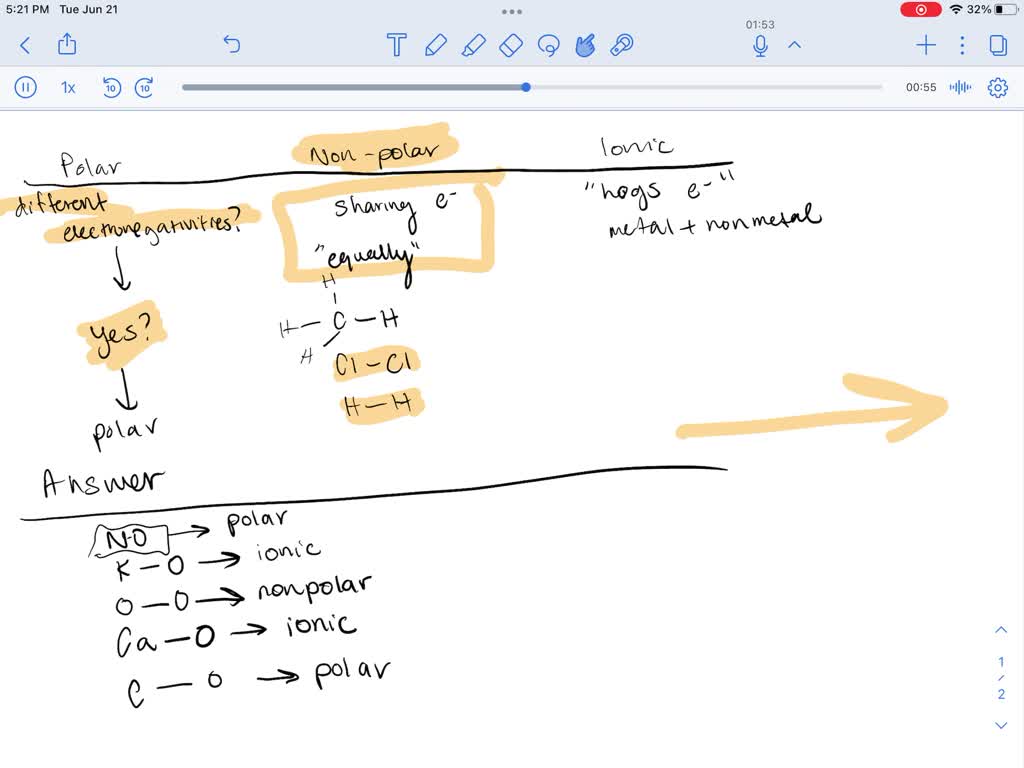 5:21 PM Tue Jun 21
32%
01:53
1x
10
10
00:55
Polar
Non-polar
Ionic
different
electronegativities?
yes?
polar
sharing e-
"equally"
H
H-C-H
H
Cl-Cl
H-H
"hogs e-"
metal + nonmetal
Answer
N-O → polar
K-O → ionic
O-O → nonpolar
Ca-O → ionic
C-O → polar
1
2